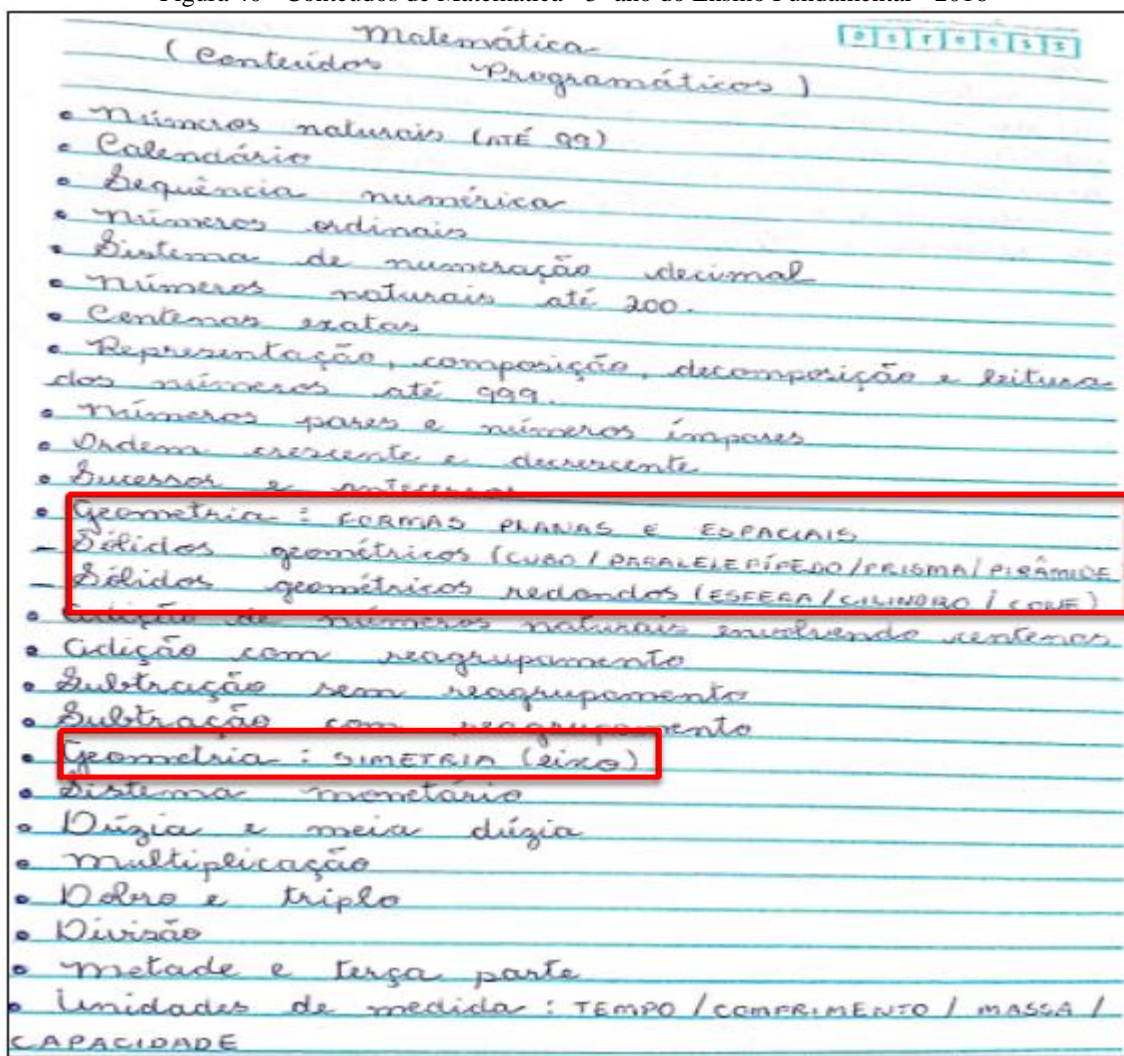 Matemática D S T Q Q S S
(Conteúdos Programáticos)
• Números naturais (ATÉ 99)
• Calendário
• Sequência numérica
• Números ordinais
• Sistema de numeração decimal
• Números naturais até 200.
• Centenas exatas
• Representação, composição, decomposição e leitura
dos números até 999.
• Números pares e números ímpares
• Ordem crescente e decrescente
• Sucessor e antecessor
• Geometria: FORMAS PLANAS E ESPACIAIS
– Sólidos geométricos (CUBO / PARALELEPÍPEDO / PRISMA / PIRÂMIDE
– Sólidos geométricos redondos (ESFERA / CILINDRO / CONE)
• Adição de números naturais envolvendo centenas
• Adição com reagrupamento
• Subtração sem reagrupamento
• Subtração com reagrupamento
• Geometria: SIMETRIA (eixo)
• Sistema monetário
• Dúzia e meia dúzia
• Multiplicação
• Dobro e triplo
• Divisão
• Metade e terça parte
• Unidades de medida: TEMPO / COMPRIMENTO / MASSA /
CAPACIDADE